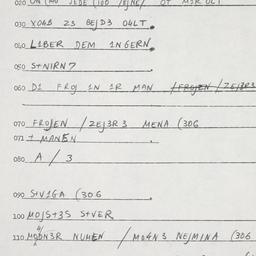 030 XO4B 23 BEJD3 O4LT.
040 L1BER DEM 1NGERN.
050 S+NIRN7
060 D1 FROJ 1N 1R MAN /FROJEN/ZEJ3R
070 FROJEN /ZEJ3R 3 MENA (306
071 + MANEN
080 A / 3
090 S+V1GA (306
100 MOJS+3S S+VER
110 MO4N3R NUMEN / MO4N3 NEJMINA (306